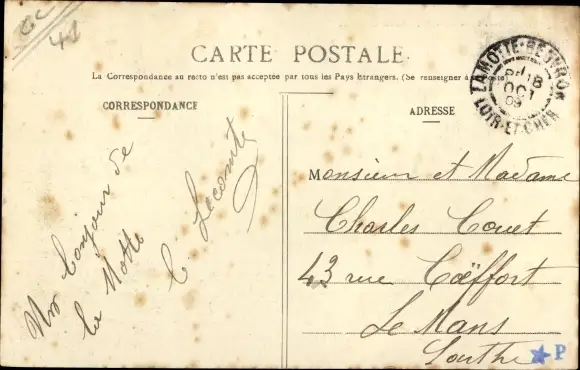 GC
41
CARTE POSTALE
La Correspondance au recto n'est pas acceptée par tous les Pays étrangers. (Se renseigner à
CORRESPONDANCE
ADRESSE
LAMOTTE-BEUVRON
18
OCT
09
LOIR-ET-CHER
Un bonjour de
la Motte
C. Lecomte
Monsieur et Madame
Charles Couet
43 rue Coëffort
Le Mans
Sarthe
★ P